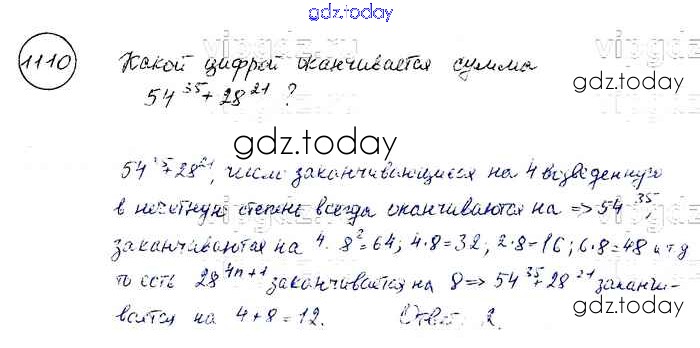 gdz.today
1110
Какой цифрой оканчивается сумма
54³⁵ + 28²¹ ?
gdz.today
gdz.today
54³⁵+28²¹, числа заканчивающиеся на 4 возведенную
в нечетную степень всегда оканчиваются на => 54³⁵,
заканчиваются на 4. 8²=64; 4·8=32; 2·8=16; 6·8=48 и т д
то есть 28⁴ⁿ⁺¹ заканчивается на 8 => 54³⁵+28²¹ заканчи-
вается на 4+8=12. Ответ: 2.
gdz.today
gdz.today